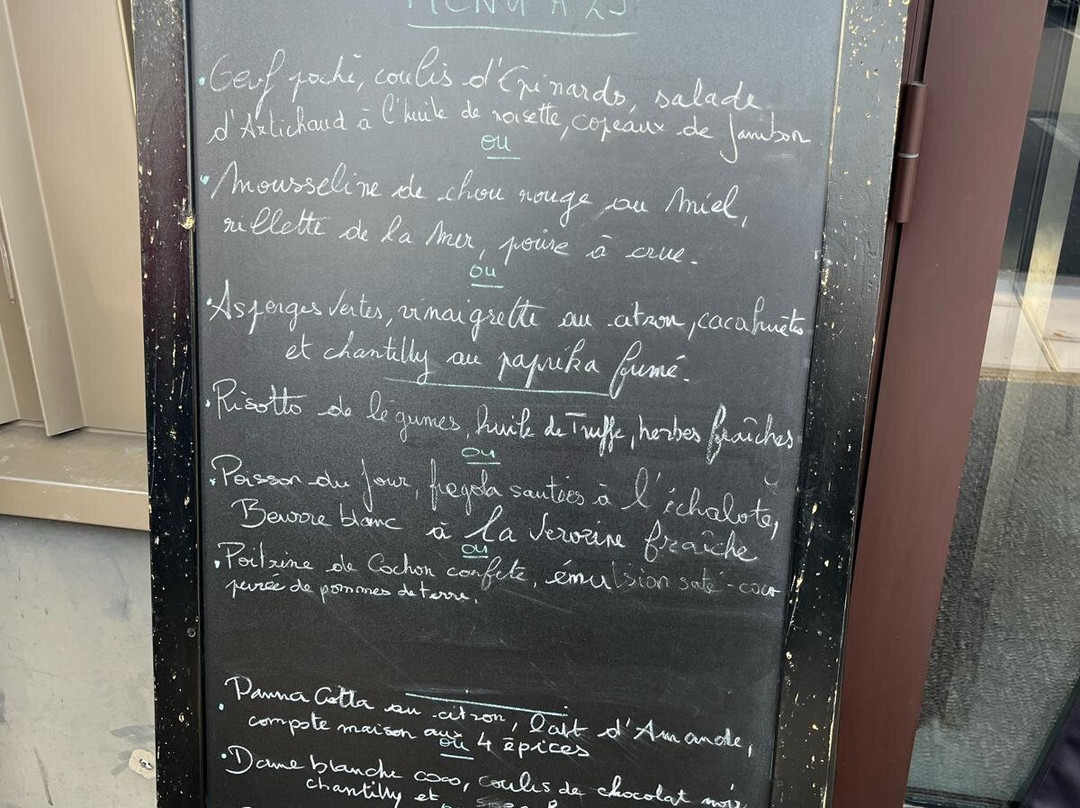 MENU A 25
. Oeuf poché, coulis d'Epinards, salade
d'Artichaud à l'huile de noisette, copeaux de jambon
ou
. Mousseline de chou rouge au Miel,
rillette de la Mer, poire à crue.
ou
. Asperges vertes, vinaigrette au citron, cacahuètes
et chantilly au paprika fumé.
. Risotto de légumes, huile de Truffe, herbes fraîches
ou
. Poisson du jour, fregola sautées à l'échalote,
Beurre blanc à la Verveine fraîche
ou
. Poitrine de Cochon confite, émulsion saté-coco
purée de pommes de terre,
. Panna Cotta au citron, lait d'Amande,
compote maison aux 4 épices
ou
. Dame blanche coco, coulis de chocolat noir
chantilly et